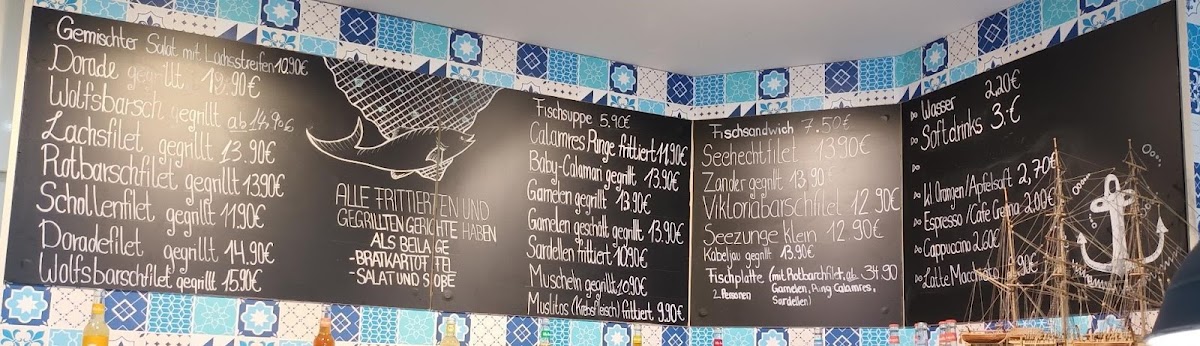 Gemischter Salat mit Lachsstreifen 10.90€
Dorade gegrillt 13.90€
Wolfsbarsch gegrillt ab 14,90€
Lachsfilet gegrillt 13.90€
Rotbarschfilet gegrillt 13.90€
Schollenfilet gegrillt 11.90€
Doradefilet gegrillt 14.90€
Wolfsbarschfilet gegrillt 15.90€
ALLE FRITTIERTEN UND
GEGRILLTEN GERICHTE HABEN
ALS BEILAGE
-BRATKARTOFFEL
-SALAT UND SOßE
Fischsuppe 5.90€
Calamres Ringe frittiert 11.90€
Baby-Calamari gegrillt 13.90€
Garnelen gegrillt 13.90€
Garnelen geschält gegrillt 13.90€
Sardellen frittiert 10.90€
Muscheln gegrillt 10.90€
Muslitos (Krebsfleisch) frittiert 9.90€
Fischsandwich 7.50€
Seehechtfilet 13.90€
Zander gegrilt 13.90€
Viktoriabarschfilet 12.90€
Seezunge klein 12.90€
Kabeljau gegrillt 13.90€
Fischplatte (mit Rotbarchfilet, ab 34.90
2 Personen Garnelen, Ring Calamres,
Sardellen)
Wasser 2.20€
Softdrinks 3.€
kl. Orangen/Apfelsaft 2,70€
Espresso/Cafe Crema 2.00€
Cappuccino 2.60€
Latte Macchiato